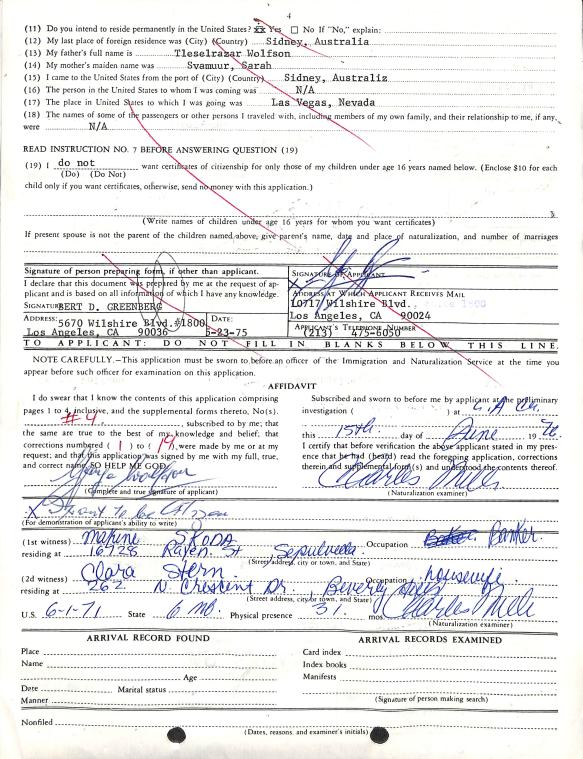 4
(11) Do you intend to reside permanently in the United States? xx Yes ☐ No If "No," explain:
(12) My last place of foreign residence was (City) (Country) Sidney, Australia
(13) My father's full name is Tleselrazar Wolfson
(14) My mother's maiden name was Svamuur, Sarah
(15) I came to the United States from the port of (City) (Country) Sidney, Australiz
(16) The person in the United States to whom I was coming was N/A
(17) The place in the United States to which I was going was Las Vegas, Nevada
(18) The names of some of the passengers or other persons I traveled with, including members of my own family, and their relationship to me, if any,
were N/A
READ INSTRUCTION NO. 7 BEFORE ANSWERING QUESTION (19)
(19) I do not want certificates of citizenship for only those of my children under age 16 years named below. (Enclose $10 for each
(Do) (Do Not)
child only if you want certificates, otherwise, send no money with this application.)
(Write names of children under age 16 years for whom you want certificates)
If present spouse is not the parent of the children named above, give parent's name, date and place of naturalization, and number of marriages
Signature of person preparing form, if other than applicant.
I declare that this document was prepared by me at the request of ap-
plicant and is based on all information of which I have any knowledge.
SIGNATURE BERT D. GREENBERG
ADDRESS: 5670 Wilshire Blvd. #1800 DATE:
Los Angeles, CA 90036 5-23-75
SIGNATURE OF APPLICANT
X
ADDRESS AT WHICH APPLICANT RECEIVES MAIL
10717 Wilshire Blvd.
Los Angeles, CA 90024
APPLICANT'S TELEPHONE NUMBER
(213) 475-6050
TO APPLICANT: DO NOT FILL IN BLANKS BELOW THIS LINE.
NOTE CAREFULLY.—This application must be sworn to before an officer of the Immigration and Naturalization Service at the time you
appear before such officer for examination on this application.
AFFIDAVIT
I do swear that I know the contents of this application comprising
pages 1 to 4, inclusive, and the supplemental forms thereto, No(s).
#4, subscribed to by me; that
the same are true to the best of my knowledge and belief; that
corrections numbered ( 1 ) to ( 14 ) were made by me or at my
request; and that this application was signed by me with my full, true,
and correct name, SO HELP ME GOD.
(Complete and true signature of applicant)
X I want to be Citizen
(For demonstration of applicant's ability to write)
Subscribed and sworn to before me by applicant at the preliminary
investigation ( ) at L.A. Ca.
this 15th day of June, 19
I certify that before verification the above applicant stated in my pres-
ence that he had (heard) read the foregoing application, corrections
therein and supplemental form(s) and understood the contents thereof.
Charles Mills
(Naturalization examiner)
(1st witness) Maxine SKODA Occupation Banker.
residing at 16728 Rayen St Sepulveda
(Street address, city or town, and State)
(2d witness) Clara Stern Occupation housewife
residing at 262 N. Crescent Dr. Beverly Hills
(Street address, city or town, and State)
U.S. 6-1-71 State 6 mo. Physical presence 31 mos. Charles Mills
(Naturalization examiner)
ARRIVAL RECORD FOUND
Place
Name
Age
Date Marital status
Manner
ARRIVAL RECORDS EXAMINED
Card index
Index books
Manifests
(Signature of person making search)
Nonfiled
(Dates, reasons, and examiner's initials)